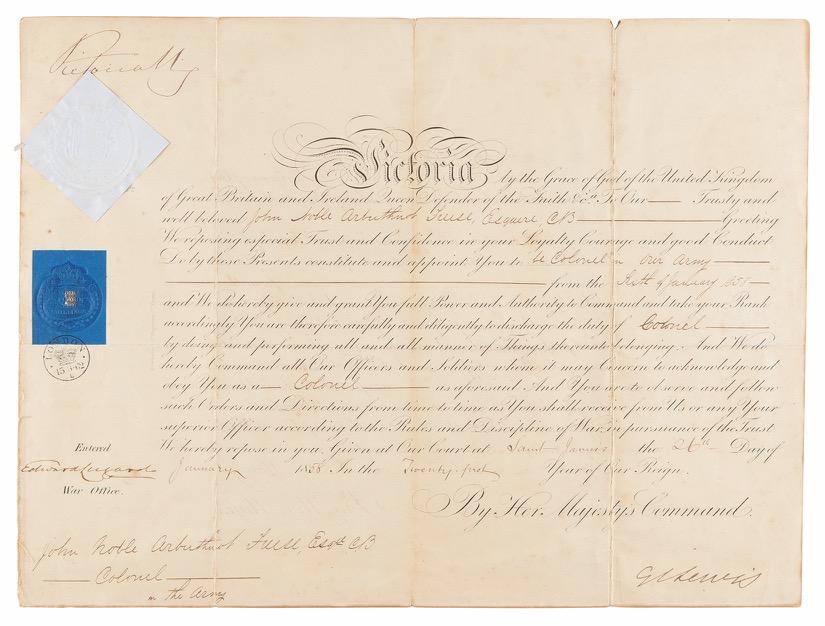 Victoria R
Victoria by the Grace of God of the United Kingdom
of Great Britain and Ireland Queen Defender of the Faith &c. To Our Trusty and
well beloved John Noble Arbuthnot Freese, Esquire CB Greeting
We reposing especial Trust and Confidence in your Loyalty Courage and good Conduct
Do by these Presents constitute and appoint You to be Colonel in our Army
from the Sixth of January 1858
and We do hereby give and grant You full Power and Authority to Command and take your Rank
accordingly You are therefore carefully and diligently to discharge the duty of Colonel
by doing and performing all and all manner of Things thereunto belonging. And We do
hereby Command all Our Officers and Soldiers whom it may Concern to acknowledge and
obey You as a Colonel as aforesaid And You are to observe and follow
such Orders and Directions from time to time as You shall receive from Us or any Your
superior Officer according to the Rules and Discipline of War in pursuance of the Trust
We hereby repose in you. Given at Our Court at Saint James's the 26th Day of
January 1858 In the Twenty first Year of Our Reign.
By Her Majesty's Command.
LONDON
Entered
War Office.
John Noble Arbuthnot Freese, Esqre CB
Colonel
in the Army
G C Lewis